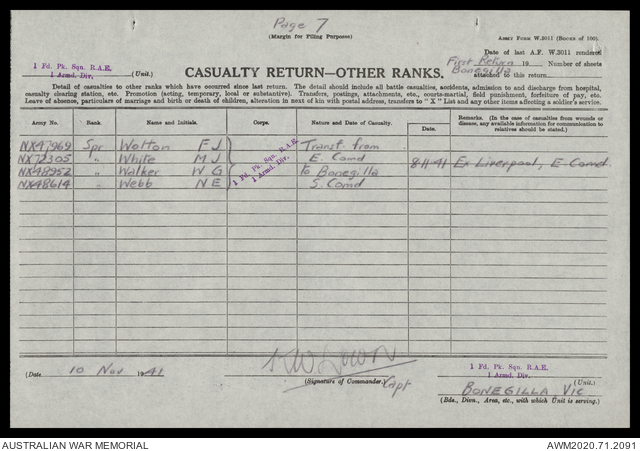 Page 7
(Margin for Filing Purposes)
ARMY FORM W.3011 (BOOKS OF 100).
Date of last A.F. W.3011 rendered
First Return 19 Number of sheets
Bonegilla attached to this return
1 Fd. Pk. Sqn. R.A.E.
1 Armd. Div. (Unit.)
CASUALTY RETURN—OTHER RANKS.
Detail of casualties to other ranks which have occurred since last return. The detail should include all battle casualties, accidents, admission to and discharge from hospital,
casualty clearing station, etc. Promotion (acting, temporary, local or substantive). Transfers, postings, attachments, etc., courts-martial, field punishment, forfeiture of pay, etc.
Leave of absence, particulars of marriage and birth or death of children, alteration in next of kin with postal address, transfers to "X" List and any other items affecting a soldier's service.
Army No. Rank. Name and Initials. Corps. Nature and Date of Casualty. Date. Remarks. (In the case of casualties from wounds or disease, any available information for communication to relatives should be stated.)
NX47969 Spr Wotton F J Transf. from
NX72305 " White M J E. Comd 8-11-41 Ex Liverpool, E-Comd
NX48952 " Walker W G to Bonegilla
NX48614 " Webb N E S. Comd
1 Fd. Pk. Sqn. R.A.E.
1 Armd. Div.
(Date 10 Nov 1941
(Signature of Commander. Capt
1 Fd. Pk. Sqn. R.A.E.
1 Armd. Div. (Unit.)
BONEGILLA VIC
(Bde., Divn., Area, etc., with which Unit is serving.)
AUSTRALIAN WAR MEMORIAL AWM2020.71.2091